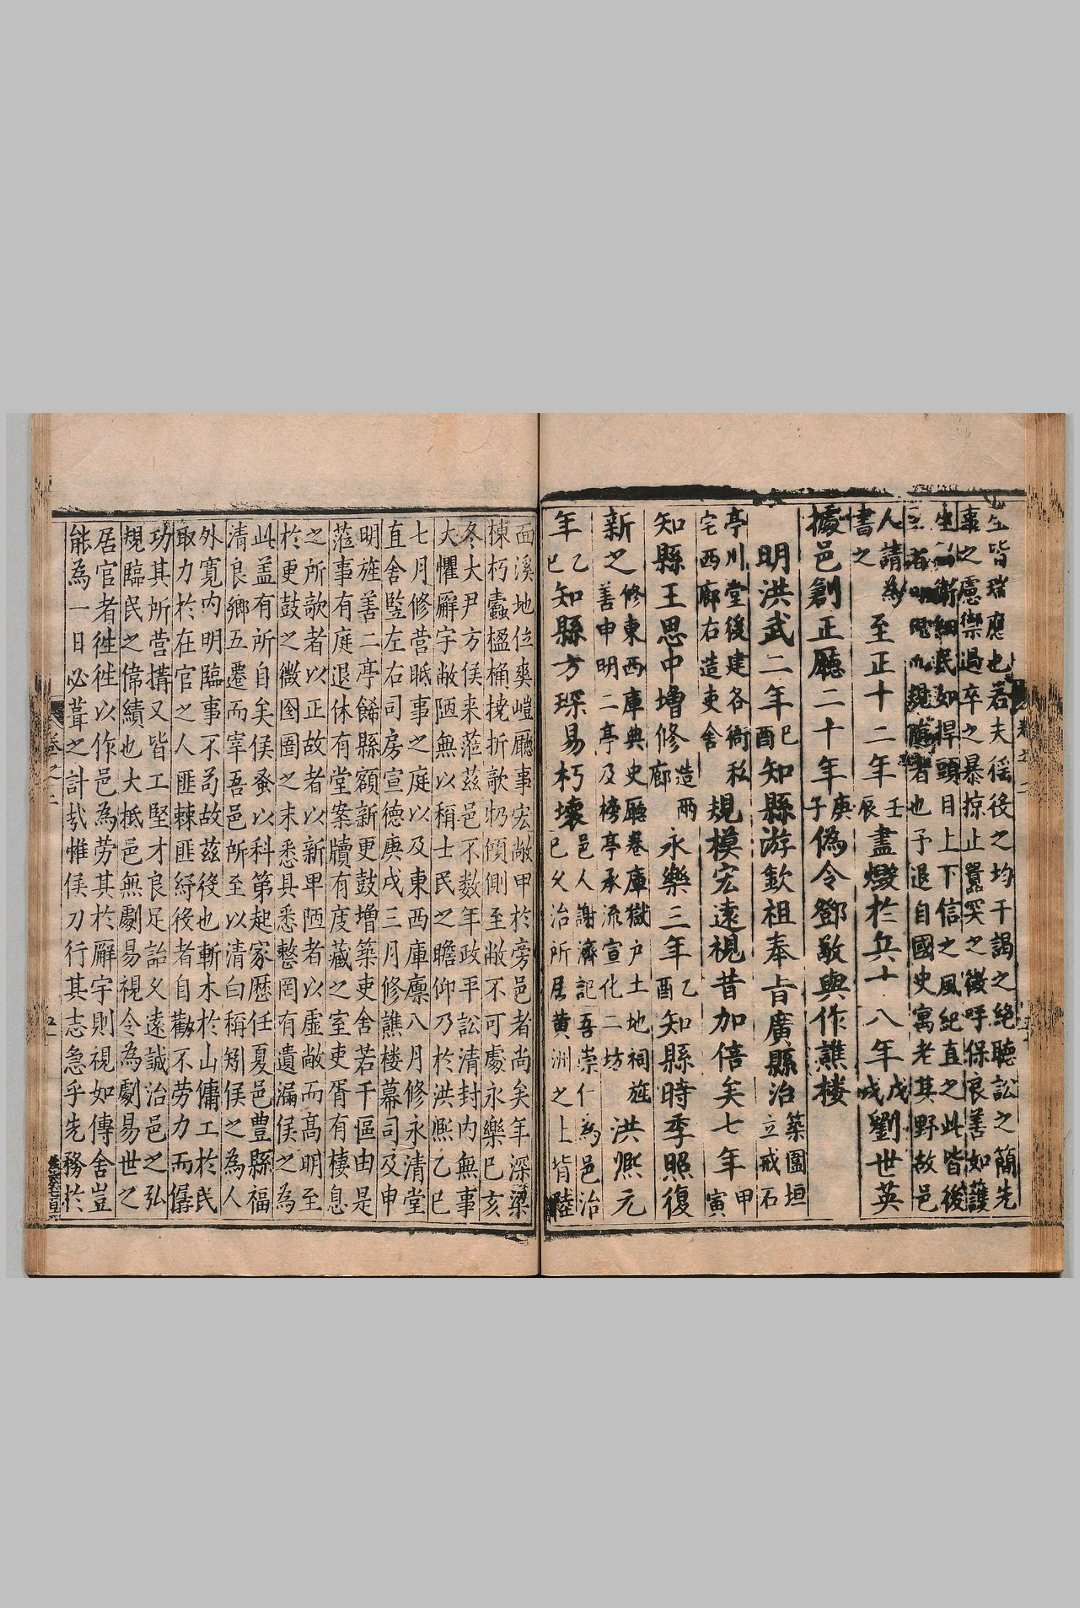 皆瑞應也若夫徭役之均干謁之絕聽訟之簡先
事之慮禦過卒之暴掠止囂哭之徵呼保良善如護
細民如捍頭目上下信之風紀直之此皆後
者也予退自國史寓老其野故邑
人請為
書之
至正十二年
壬
辰
盡燬於兵十八年
戊
戌
劉世英
據邑創正廳二十年
庚
子
偽令鄧敬興作譙楼
明洪武二年
己
酉
知縣游欽祖奉旨廣縣治
築圍垣
立戒石
亭川堂後建各衙私
宅西廊右造吏舍
規模宏遠視昔加倍矣七年
甲
寅
知縣王思中增修
造兩
廊
永樂三年
乙
酉
知縣時季照復
新之
修東西庫典史廳巻庫獄户土地祠旌
善申明二亭及榜亭承流宣化二坊
洪熈元
年
乙
巳
知縣方琛易朽壞
邑人謝濟記吾崇仁為邑治
巴父治所居黄洲之上背陸
面溪地位奭塏廳事宏敞甲於旁邑者尚矣年深梁
棟朽蠹楹桷撓折欹㧆傾側至敝不可處永樂己亥
冬大尹方侯来蒞兹邑不数年政平訟清封内無事
大懼廨宇敝陋無以稱士民之瞻仰乃於洪熈乙巳
七月修营眂事之庭以及東西庫廪八月修永清堂
直舍竪左右司房宣德庚戌三月修譙楼幕司及申
明旌善二亭餙縣額新更鼓增築吏舍若干區由是
蒞事有庭退休有堂案牘有庋藏之室吏胥有棲息
之所欹者以正故者以新卑陋者以虚敞而髙明至
於更鼓之微囹圄之末悉具悉整罔有遺漏侯之為
此盖有所自矣侯蚤以科第起家歴任夏邑豊縣福
清良鄉五遷而宰吾邑所至以清白稱矧侯之為人
外寛内明臨事不茍故兹役也斬木於山傭工於民
取力於在官之人匪棘匪紓役者自勸不劳力而僝
功其所营搆又皆工堅才良足詒久遠誠治邑之弘
規臨民之偉績也大抵邑無劇易視令為劇易世之
居官者徃徃以作邑為劳其於廨宇則視如傳舍豈
能為一日必葺之計㢤惟侯刀行其志急乎先務於